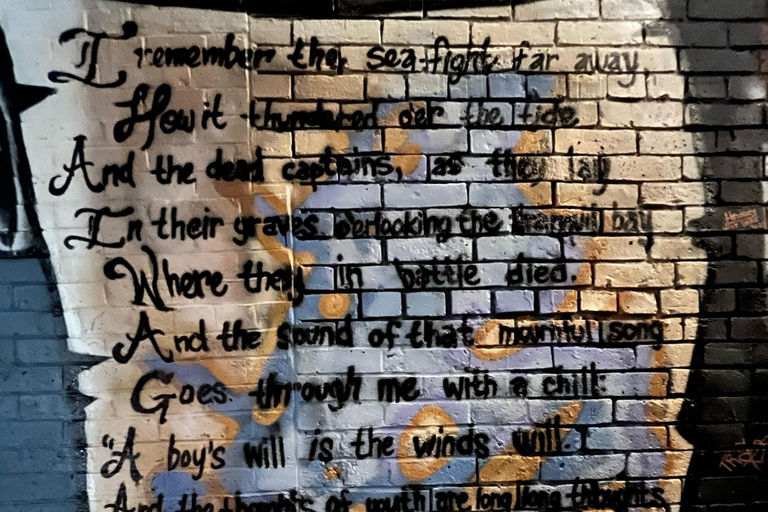 I remember the sea-fight far away
How it thundered o'er the tide
And the dead captains, as they lay
In their graves o'erlooking the tranquil bay
Where they in battle died.
And the sound of that mournful song
Goes through me with a chill:
"A boy's will is the winds will.
And the thoughts of youth are long long thoughts